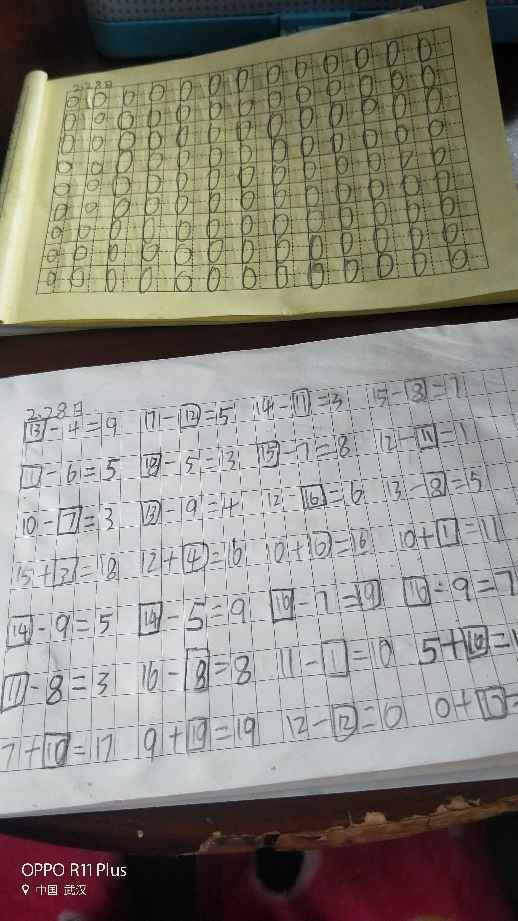 2.28日
0 0 0 0 0 0 0 0 0 0 0 0 0
0 0 0 0 0 0 0 0 0 0 0 0 0
0 0 0 0 0 0 0 0 0 0 0 0 0
0 0 0 0 0 0 0 0 0 0 0 0 0
0 0 0 0 0 0 0 0 0 0 0 0 0
0 0 0 0 0 0 0 0 0 0 0 0 0
0 0 0 0 0 0 0 0 0 0 0 0 0
0 0 0 0 0 0 0 0 0 0 0 0 0
0 0 0 0 0 0 0 0 0 0 0 0 0
2.28日
13-4=9 17-12=5 14-11=3 15-8=7
11-6=5 18-5=13 15-7=8 12-11=1
10-7=3 13-9=4 12-=6 13-8=5
15+3=18 12+4=16 10+=16 10+1=11
14-9=5 14-5=9 -7=9 16-9=7
11-8=3 16-8=8 11-1=10 5+10=
7+10=17 9+10=19 12-12=0 0+
OPPO R11 Plus
中国 武汉